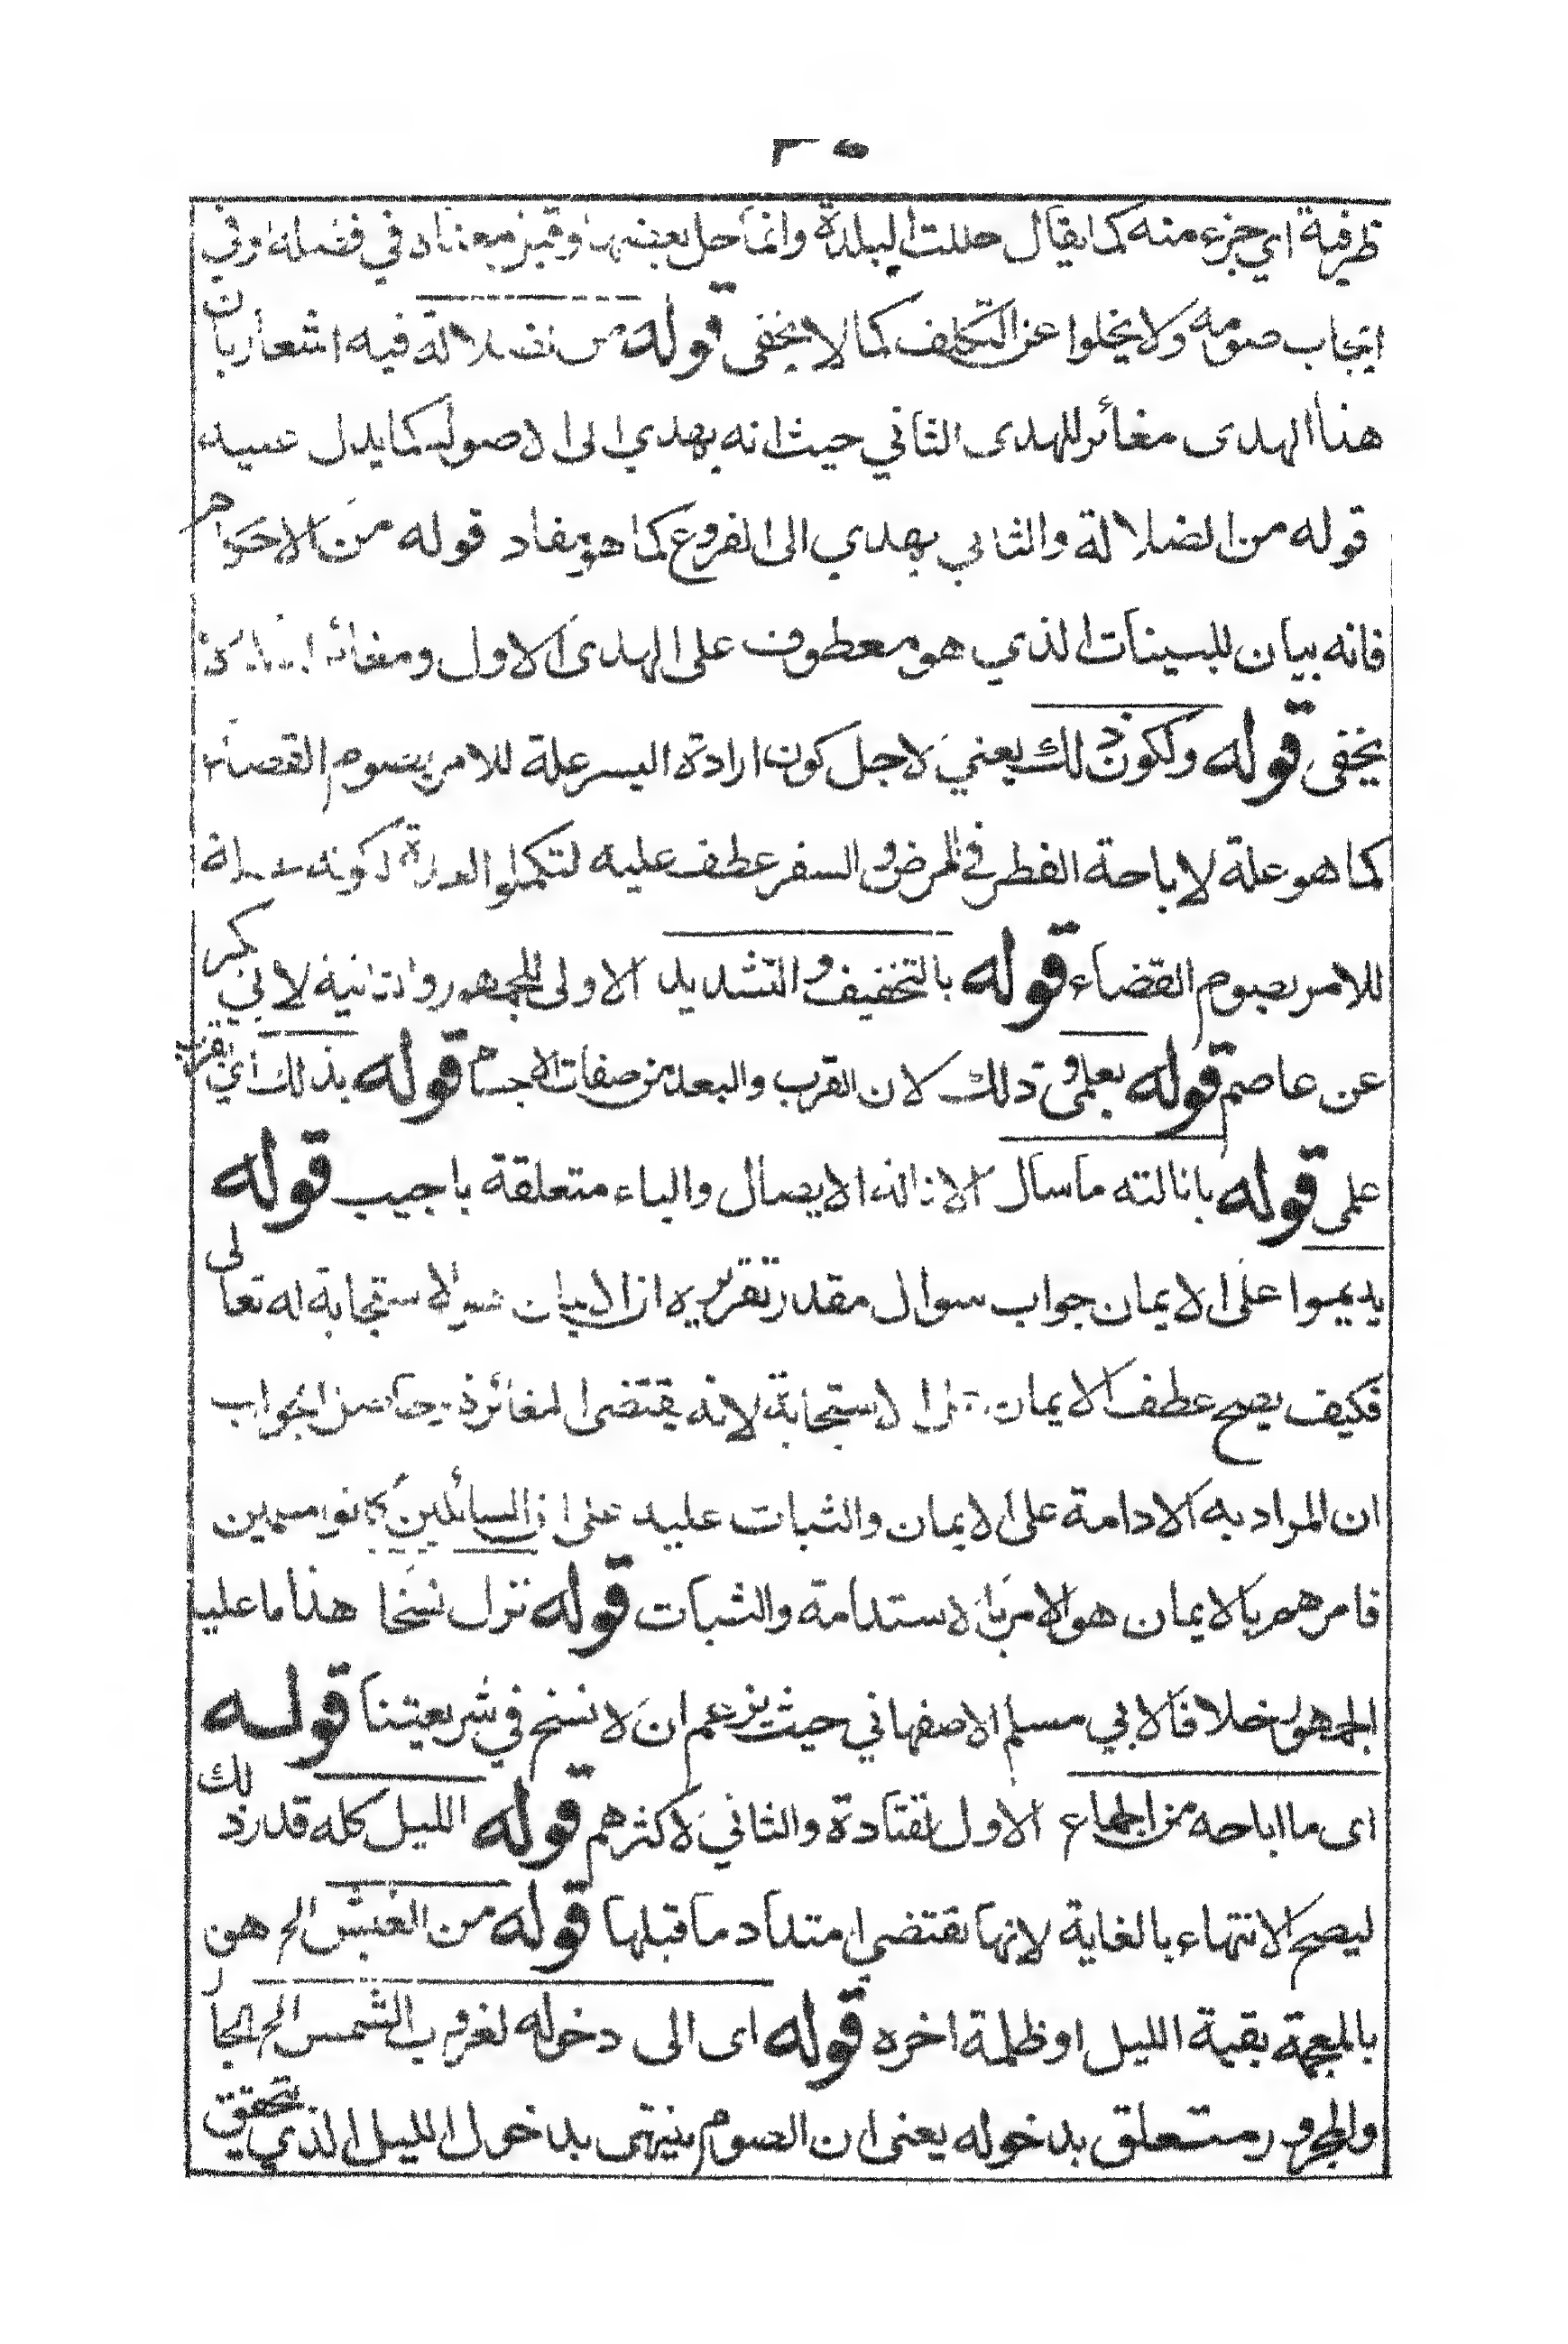 ظرفية اي جزء منه كما يقال حللت البلدة وانما حل بعضها وقيل معناه في فضله او في
ايجاب صومه ولا يخلوا عن التكلف كما لا يخفى قوله من الضلالة فيه اشعار بان
هذا الهدى مغائر للهدى الثاني حيث انه يهدي الى الاصول كما يدل عليه
قوله من الضلالة والثاني يهدي الى الفروع كما هو مفاد قوله من الاحكام
فانه بيان للبينات الذي هو معطوف على الهدى الاول ومغائر
يخفى قوله ولكون ذلك يعني لاجل كون ارادة اليسر علة للامر بصوم القضاء
كما هو علة لاباحة الفطر في المرض والسفر عطف عليه لتكملوا العدة لكونه علة
للامر بصوم القضاء قوله بالتخفيف والتشديد الاولى للجمهور والثانية لابي بكر
عن عاصم قوله بعلمي وذلك لان القرب والبعد من صفات الاجسام قوله بذلك اي القرب
على قوله بانالته ما سأل الانالة الايصال والباء متعلقة باجيب قوله
يديموا على الايمان جواب سوال مقدر تقريره ان الايمان هو الاستجابة له تعالى
فكيف يصح عطف الايمان على الاستجابة لانه يقتضى المغائرة حاصل الجواب
ان المراد به الادامة على الايمان والثبات عليه على ان السائلين كانوا مسلمين
فامرهم بالايمان هو الامر بالاستدامة والثبات قوله نزل نسخا هذا ما عليه
الجمهور خلافا لابي مسلم الاصفهاني حيث يزعم ان لا نسخ في شريعتنا قوله
اى ما اباحه من الجماع الاول لقتادة والثاني لاكثرهم قوله الليل كله قدر ذلك
ليصح الانتهاء بالغاية لانها تقتضي امتداد ما قبلها قوله من الغبش الخ هن
بالمعجمة بقية الليل او ظلمة اخره قوله اى الى دخوله لغروب الشمس الخ الجار
والمجرور متعلق بدخوله يعنى ان الصوم ينتهى بدخول الليل الذي يتحقق